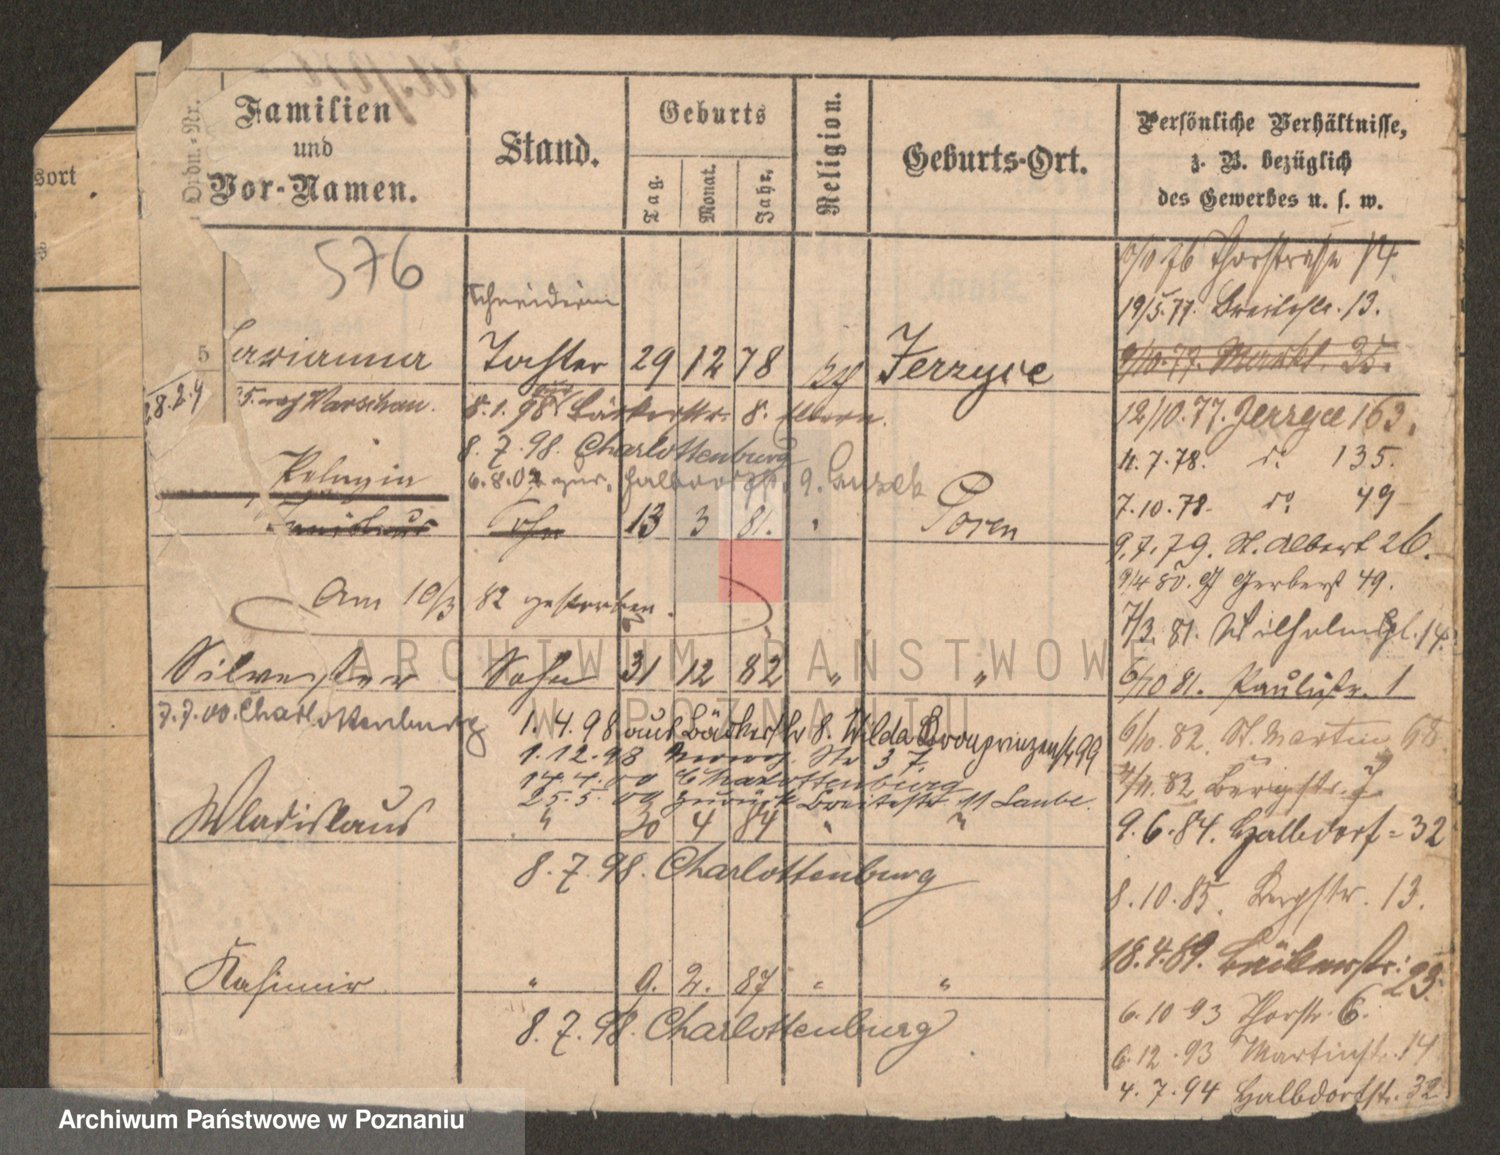 Ordn.-Nr.
Familien
und
Vor-Namen.
Stand.
Geburts
Tag.
Monat.
Jahr.
Religion.
Geburts-Ort.
Persönliche Verhältnisse,
z. B. bezüglich
des Gewerbes u. s. w.
sort
576
Schneiderin
5 Marianna Tochter 29 12 78 Jerzyce
28.2.9 Warschau. 8.1.98 Bäckerstr. 8. Eltern.
8.7.98. Charlottenburg
Pelagia
Sohn 13 3 81. " Posen
Am 10/3 82 gestorben.
Silvester Sohn 31 12 82 " "
7.7.00. Charlottenburg
1.4.98 aus Bäckerstr 8. Wilda Kronprinzenstr 99
1.12.98 Str 37.
14.4.00 Charlottenburg
25.5.00 zurück Breitestr 11 Laube.
Wladislaus " 30 4 84 " "
8.7.98. Charlottenburg
Kasimir " 9. 2. 87 " "
8.7.98. Charlottenburg
10/10 76 Thorstrasse 14
19/5.77. Breitestr. 13.
9/10.77. Markt. 35.
12/10.77. Jerzyce 163.
11.7.78. do 135.
7.10.78. do 49
9.7.79. St. Albert 26.
9/4 80. Gr Gerberst 49.
7/3. 81. Wilhelmspl. 14.
6/10 81. Paulistr. 1
6/10. 82. St. Martin 68.
7/11. 82 Bergstr. 7
9.6.84. Halbdorf = 32
8.10.85. Bergstr. 13.
18.4.89. Bäckerstr. 23.
6.10 93 Thorstr. 6.
6.12.93 Martinstr. 14
4.7.94 Halbdorfstr. 32
ARCHIWUM PAŃSTWOW
W POZNANIU
Archiwum Państwowe w Poznaniu